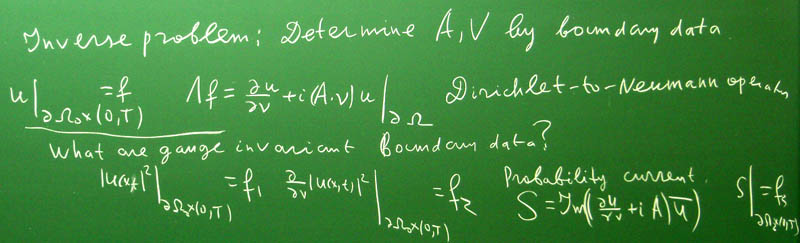 Inverse problem: Determine A, V by boundary data
u|_{∂Ω₀×(0,T)} = f   Λf = ∂u/∂ν + i(A·ν)u|_{∂Ω}   Dirichlet-to-Neumann operator
What are gauge invariant boundary data?
|u(x,t)|²|_{∂Ω₀×(0,T)} = f₁   ∂/∂ν |u(x,t)|²|_{∂Ω₀×(0,T)} = f₂   Probability current. S = Im((∂u/∂ν + iA)u̅)   S|_{∂Ω₀×(0,T)} = f₃